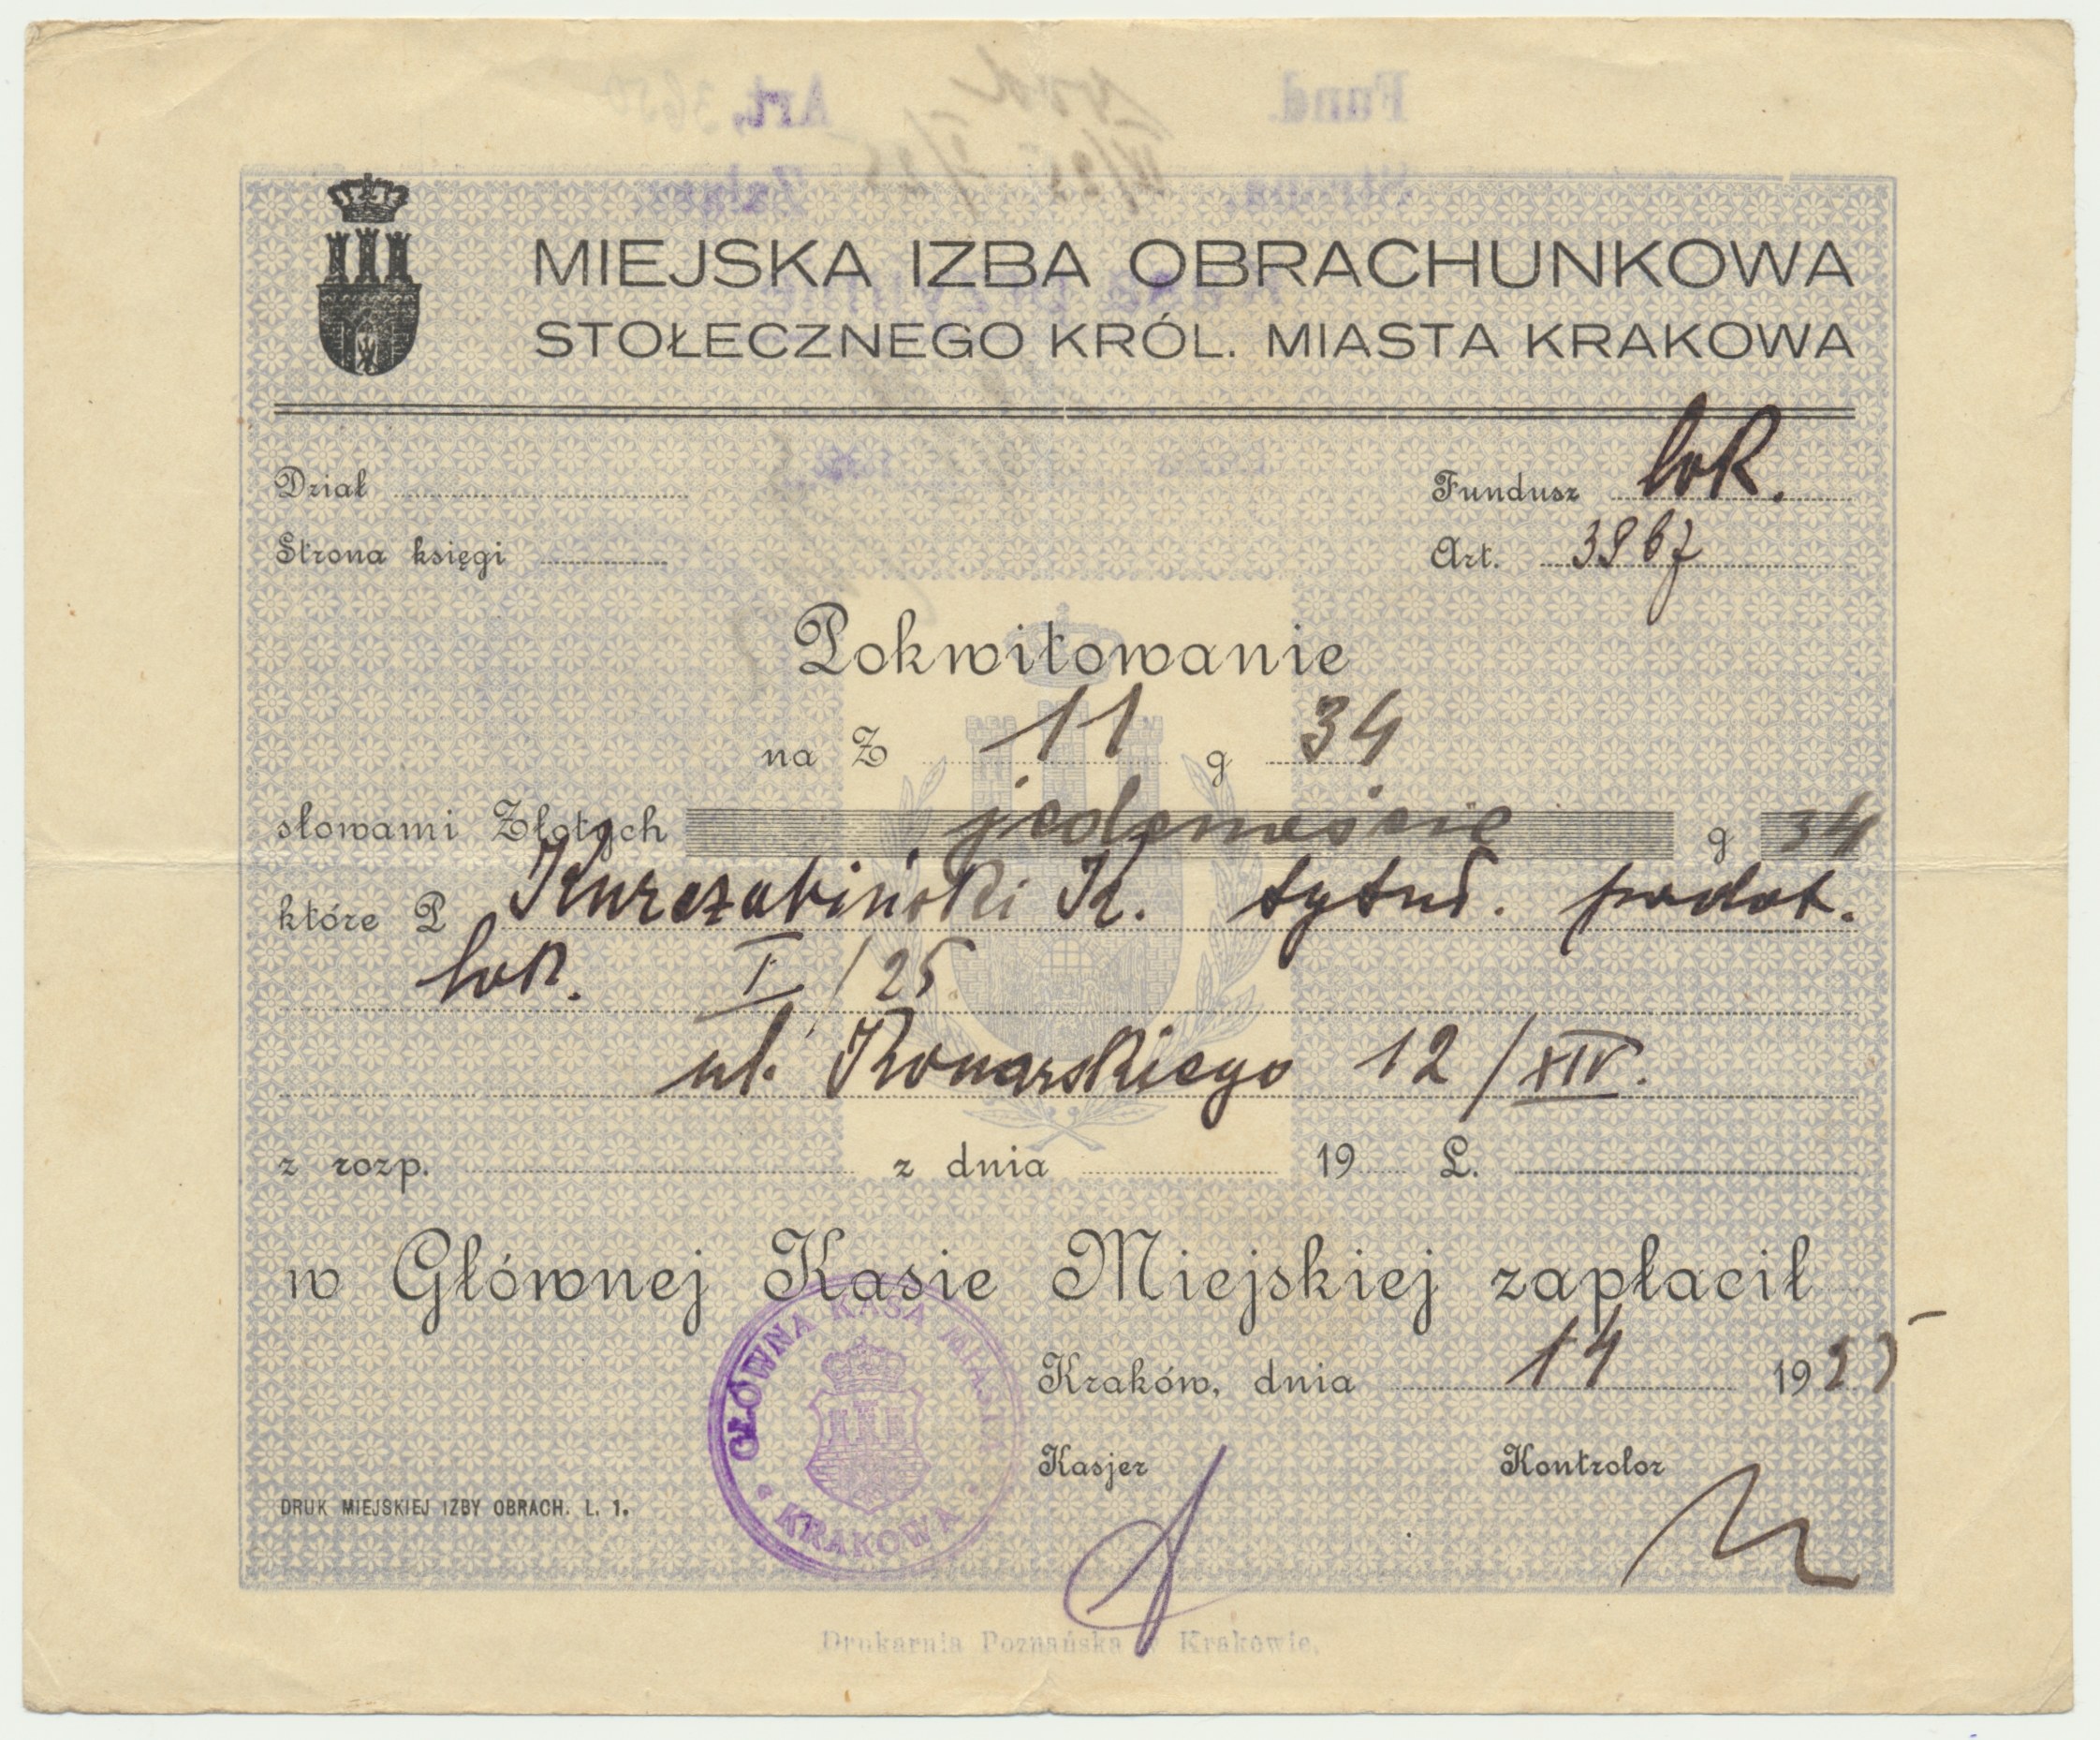 MIEJSKA IZBA OBRACHUNKOWA
STOŁECZNEGO KRÓL. MIASTA KRAKOWA
Dział
Fundusz lok.
Strona księgi
Art. 3867
Pokwitowanie
na Z 11 g 34
słowami Złotych jedenaście g 34
które P Kurczabiński K. tytuł. podat.
lok. I/25
ul. Konarskiego 12/XIV.
z rozp. z dnia 19 L.
w Głównej Kasie Miejskiej zapłacił
Kraków, dnia 14 1925
Kasjer Kontrolor
GŁÓWNA KASA MIASTA KRAKOWA
DRUK MIEJSKIEJ IZBY OBRACH. L. 1.
Drukarnia Poznańska w Krakowie.